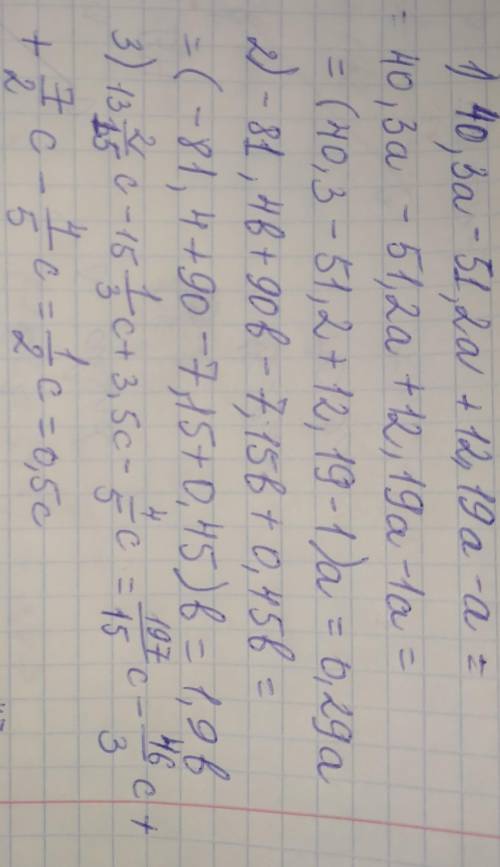 1) 40,3a-51,2a+12,19a-a=
= 40,3a-51,2a+12,19a-1a=
= (40,3-51,2+12,19-1)a=0,29a
2) -81,4b+90b-7,15b+0,45b=
= (-81,4+90-7,15+0,45)b=1,9b
3) 13 2/15 c - 15 1/3 c + 3,5c - 4/5 c = 197/15 c - 46/3 c +
+ 7/2 c - 4/5 c = 1/2 c = 0,5c